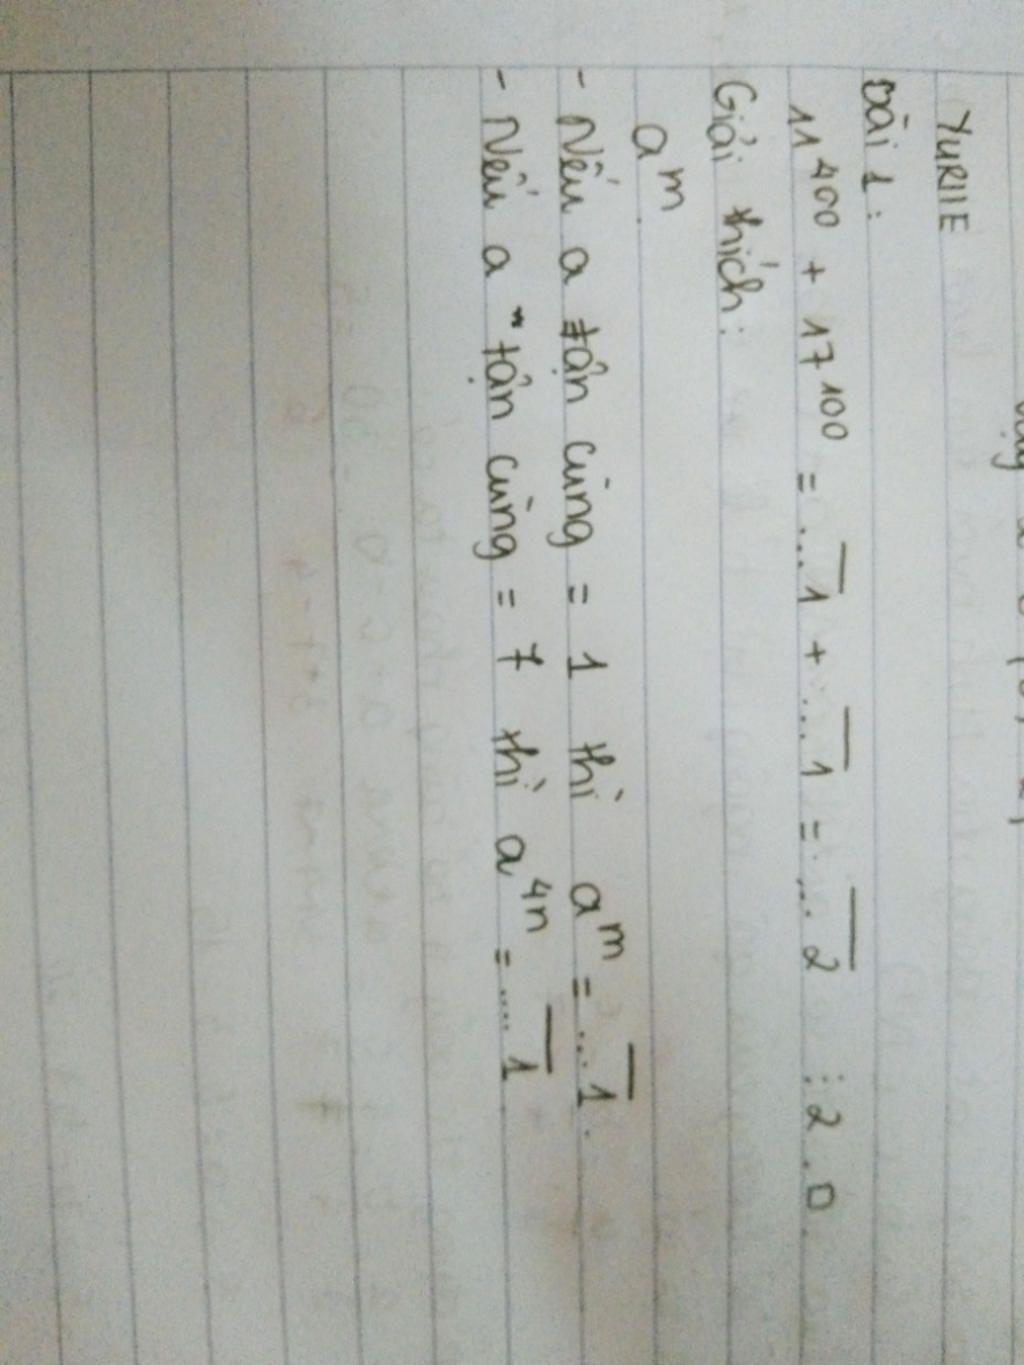 YURIIE
Bài 1:
11⁴⁰⁰ + 17¹⁰⁰ = ...1̅ + ...1̅ = ...2̅ ⋮ 2.□.
Giải thích:
aᵐ
- Nếu a tận cùng = 1 thì aᵐ = ...1̅.
- Nếu a tận cùng = 7 thì a⁴ⁿ = ....1̅